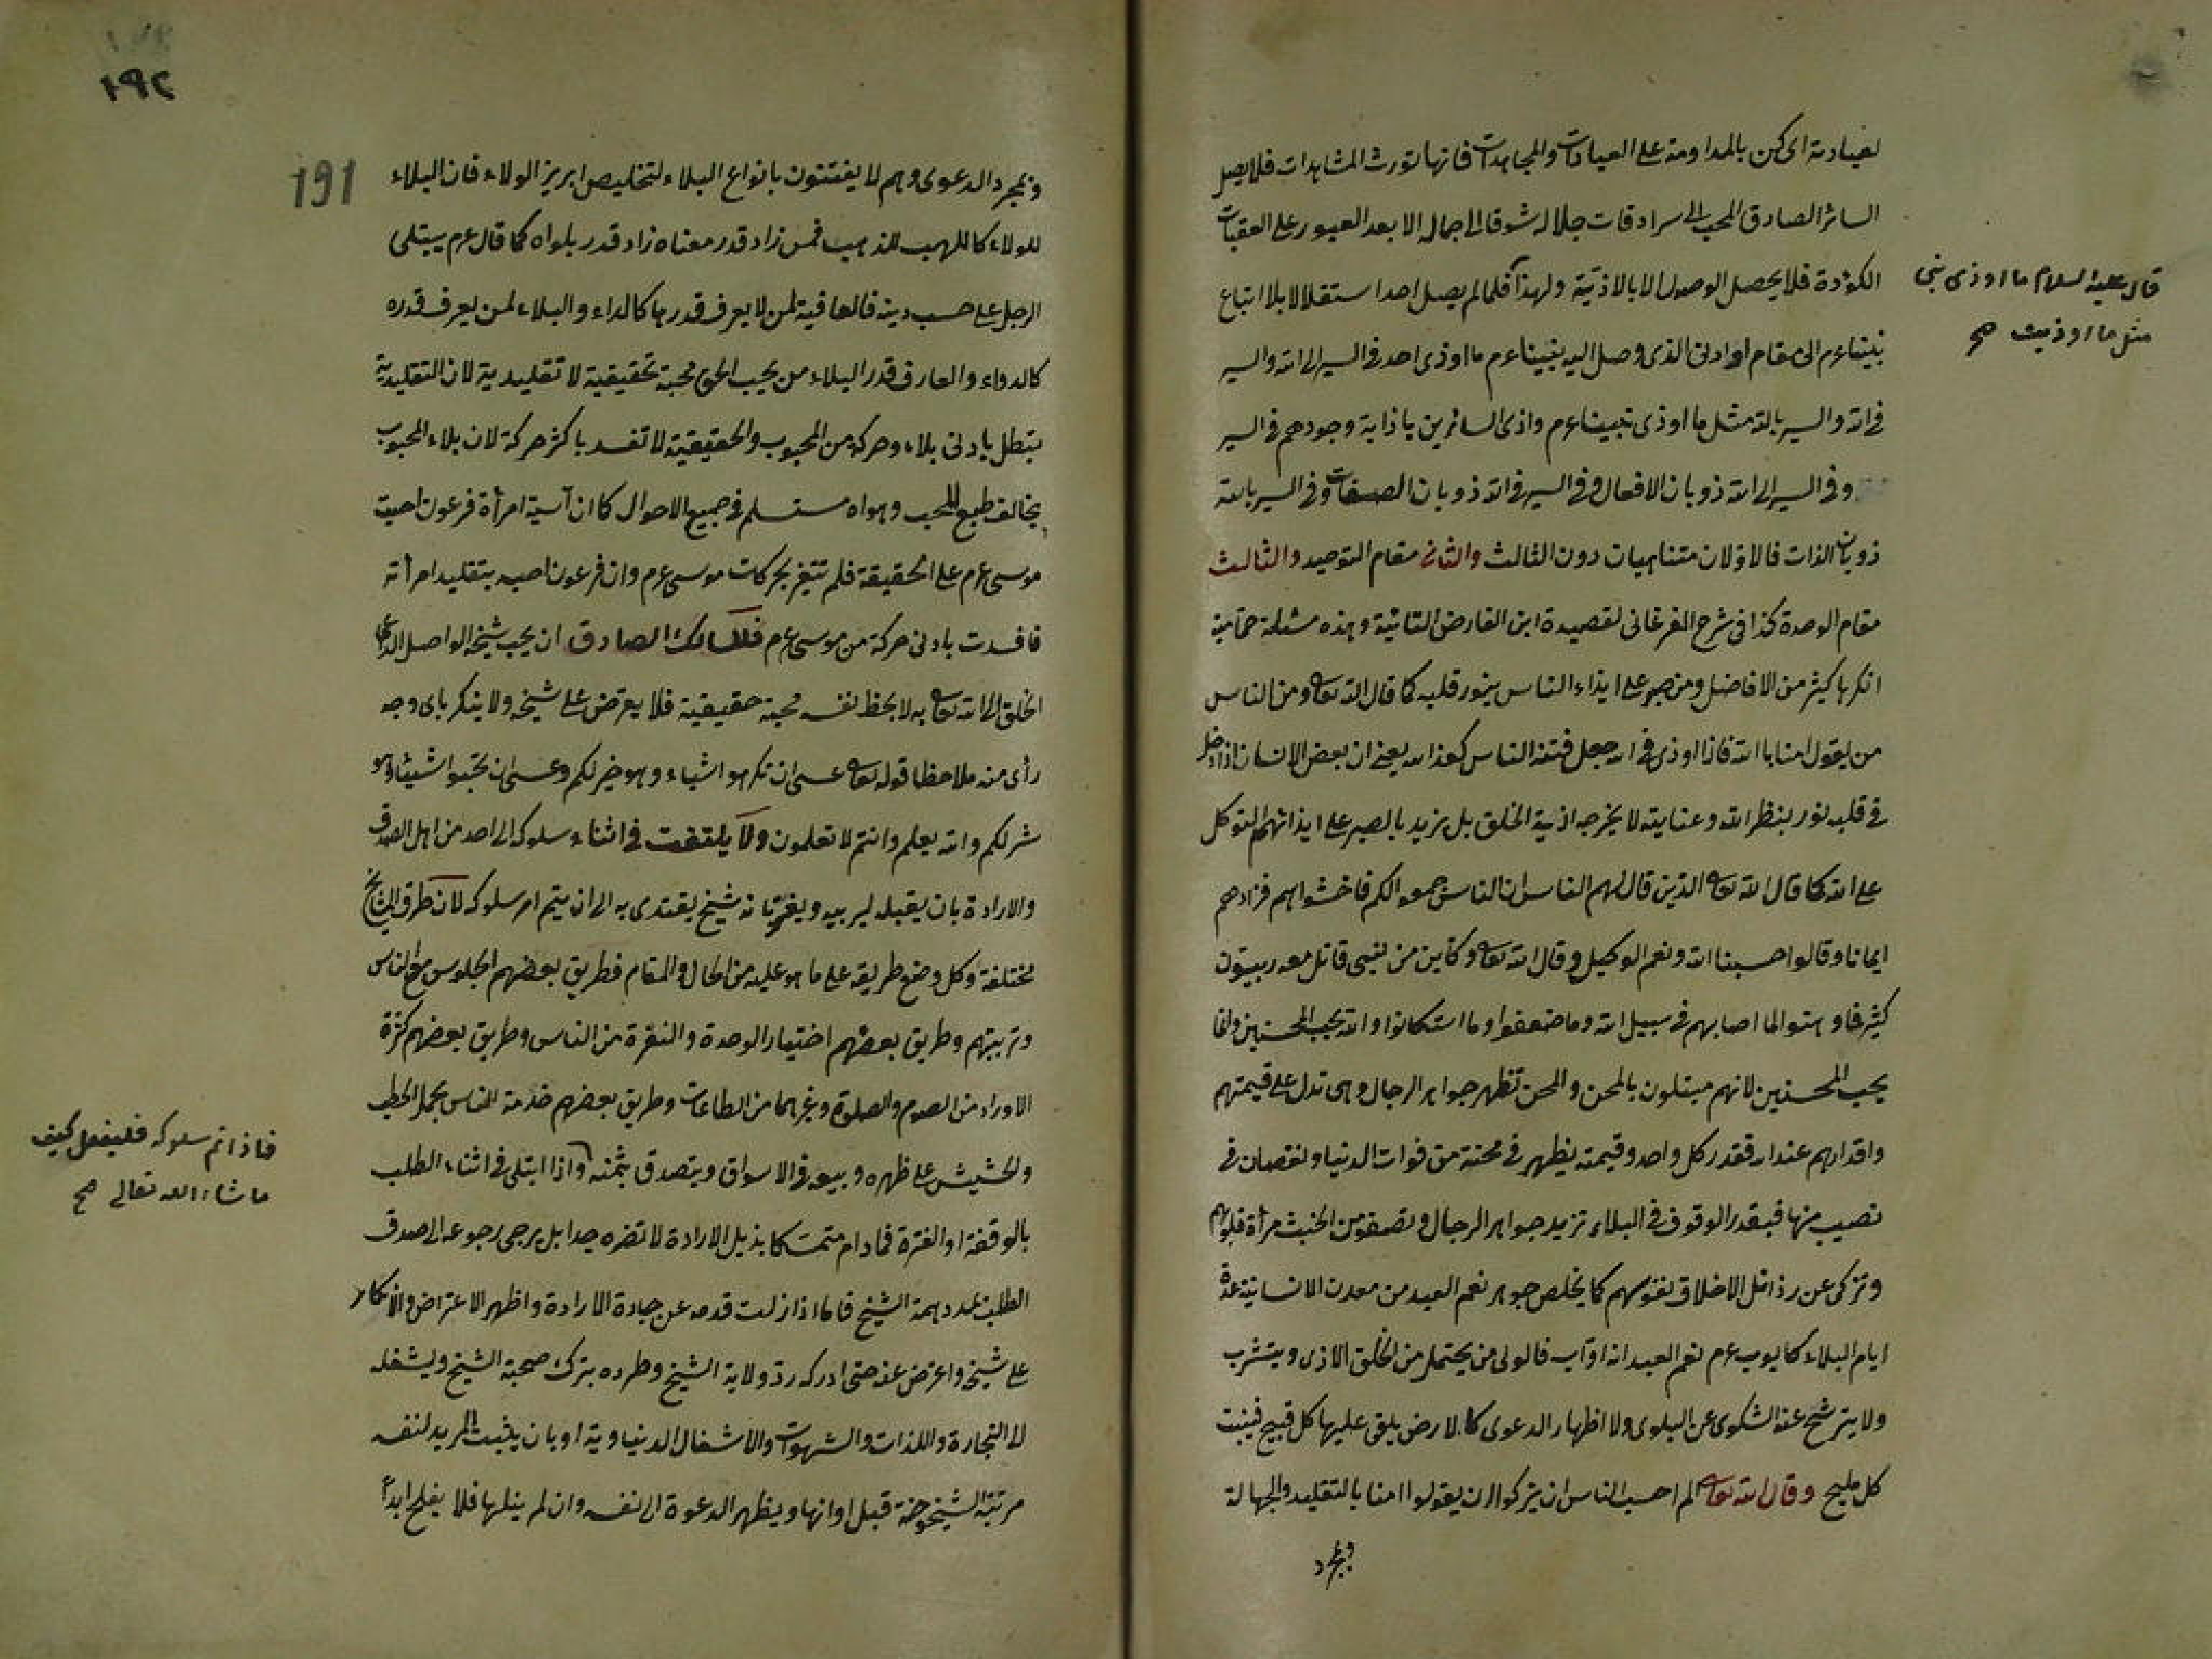 لعبادته اى كن بالمداومة على العبادات والمجاهدات فانها تورث المشاهدات فلا يصل
السائر الصادق المحب الى سرادقات جلاله شوقا الى جماله الا بعد العبور على العقبات
الكؤدة فلا يحصل الوصول الا بالاذية ولهذا فلما لم يصل احد استقلالا بلا اتباع
قال عليه السلام ما اوذى نبى
مثل ما اوذيت صح
نبينا عم الى مقام او ادنى الذى وصل اليه نبينا عم ما اوذى احد فى السير الى الله والسير
فى الله والسير بالله مثل ما اوذى نبينا عم واذى السائرين باذابة وجودهم فى السير
وفى السير الى الله ذوبان الافعال وفى السير فى الله ذوبان الصفات وفى السير بالله
ذوبان الذات فالاولان متناهيات دون الثالث والثانى مقام التوحيد والثالث
مقام الوحدة كذا فى شرح الفرغانى لقصيدة ابن الفارض التائية وهذه مسئلة
انكرها كثير من الافاضل ومن صبر على ايذاء الناس ينور قلبه كما قال الله تعا ومن الناس
من يقول امنا بالله فاذا اوذى فى الله جعل فتنة الناس كعذاب الله يعنى ان بعض الانسان اذا دخل
فى قلبه نور بنظر الله وعنايته لا يخرجه اذية الخلق بل يزيد بالصبر على ايذائهم التوكل
على الله كما قال الله تعا الذين قال لهم الناس ان الناس جمعوا لكم فاخشوهم فزادهم
ايمانا وقالوا حسبنا الله ونعم الوكيل وقال الله تعا وكأين من نبى قاتل معه ربيون
كثير فما وهنوا لما اصابهم فى سبيل الله وما ضعفوا وما استكانوا والله يحب المحسنين وانما
يحب المحسنين لانهم مبتلون بالمحن والمحن تظهر جواهر الرجال وهى تدل على قيمتهم
واقدارهم عند الله فقدر كل واحد وقيمته يظهر فى محنته من فوات الدنيا ونقصان فى
نصيب منها فبقدر الوقوف فى البلاء تزيد جواهر الرجال وتصفو من الخبث مرأة قلوبهم
وتزكى عن رذائل الاخلاق نفوسهم كما يخلص جوهر نعم العبد من معدن الانسانية مدة
ايام البلاء كايوب عم نعم العبد انه اواب فالولى من يحتمل من الخلق الاذى ويتشرب
ولا يترشح عنه الشكوى عن البلوى ولا اظهار الدعوى كالارض يلقى عليها كل قبيح فينبت
كل مليح وقال الله تعا الم احسب الناس ان يتركوا ان يقولوا امنا بالتقليد والجهالة
وبمجرد
١٩٢
191
وبمجرد الدعوى وهم لا يفتنون بانواع البلاء لتخليص ابريز الولاء فان البلاء
للولاء كاللهب للذهب فمن زاد قدر معناه زاد قدر بلواه كما قال عم يبتلى
الرجل على حسب دينه فالعافية لمن لا يعرف قدرها كالداء والبلاء لمن يعرف قدره
كالدواء والعارف قدر البلاء من يحب الحق محبة تحقيقية لا تقليدية لان التقليدية
تبطل بادنى بلاء وحركة من المحبوب والحقيقية لا تفسد باكثر حركة لان بلاء المحبوب
يخالف طبع المحب وهواه مستسلم فى جميع الاحوال كما ان آسية امرأة فرعون احبت
موسى عم على الحقيقة فلم تتغير بحركات موسى عم وان فرعون احبه بتقليد امرأته
فافسدت بادنى حركة من موسى عم فللسالك الصادق ان يحب شيخه الواصل الداعى
الخلق الى الله تعا به لا بحظ نفسه محبة حقيقية فلا يعترض على شيخه ولا ينكر باى وجه
رأى منه ملاحظا قوله تعا عسى ان تكرهوا شيئا وهو خير لكم وعسى ان تحبوا شيئا وهو
شر لكم والله يعلم وانتم لا تعلمون ولا يلتفت فى اثناء سلوكه الى احد من اهل الصدق
والارادة بان يقبله ليربيه ويغتر بانه شيخ يقتدى به الى ان يتم امر سلوكه لان طرق المشايخ
مختلفة وكل وضع طريقه على ما هو عليه من الحال والمقام فطريق بعضهم الجلوس مع الناس
وتربيتهم وطريق بعضهم اختيار الوحدة والنفرة من الناس وطريق بعضهم كثرة
الاوراد من الصوم والصلوة وغيرهما من الطاعات وطريق بعضهم خدمة الناس بحمل الحطب
والحشيش على ظهره وبيعه فى الاسواق ويتصدق بثمنه واذا ابتلى فى اثناء الطلب
فاذا تم سلوكه فليفعل كيف
ما شاء الله تعالى صح
بالوقفة او الفترة فمادام متمسكا بذيل الارادة لا تضره جدا بل يرجى رجوعه الى صدق
الطلب بمدد همة الشيخ فاما اذا زلت قدمه عن جادة الارادة واظهر الاعتراض والانكار
على شيخه واعرض عنه حتى ادركه رد ولاية الشيخ وطرده بترك صحبة الشيخ ويشغله
الى التجارة واللذات والشهوات والاشغال الدنياوية او بان يثبت المريد لنفسه
مرتبة الشيخوخة قبل اوانها ويظهر الدعوة الى نفسه وان لم ينلها فلا يفلح ابدا